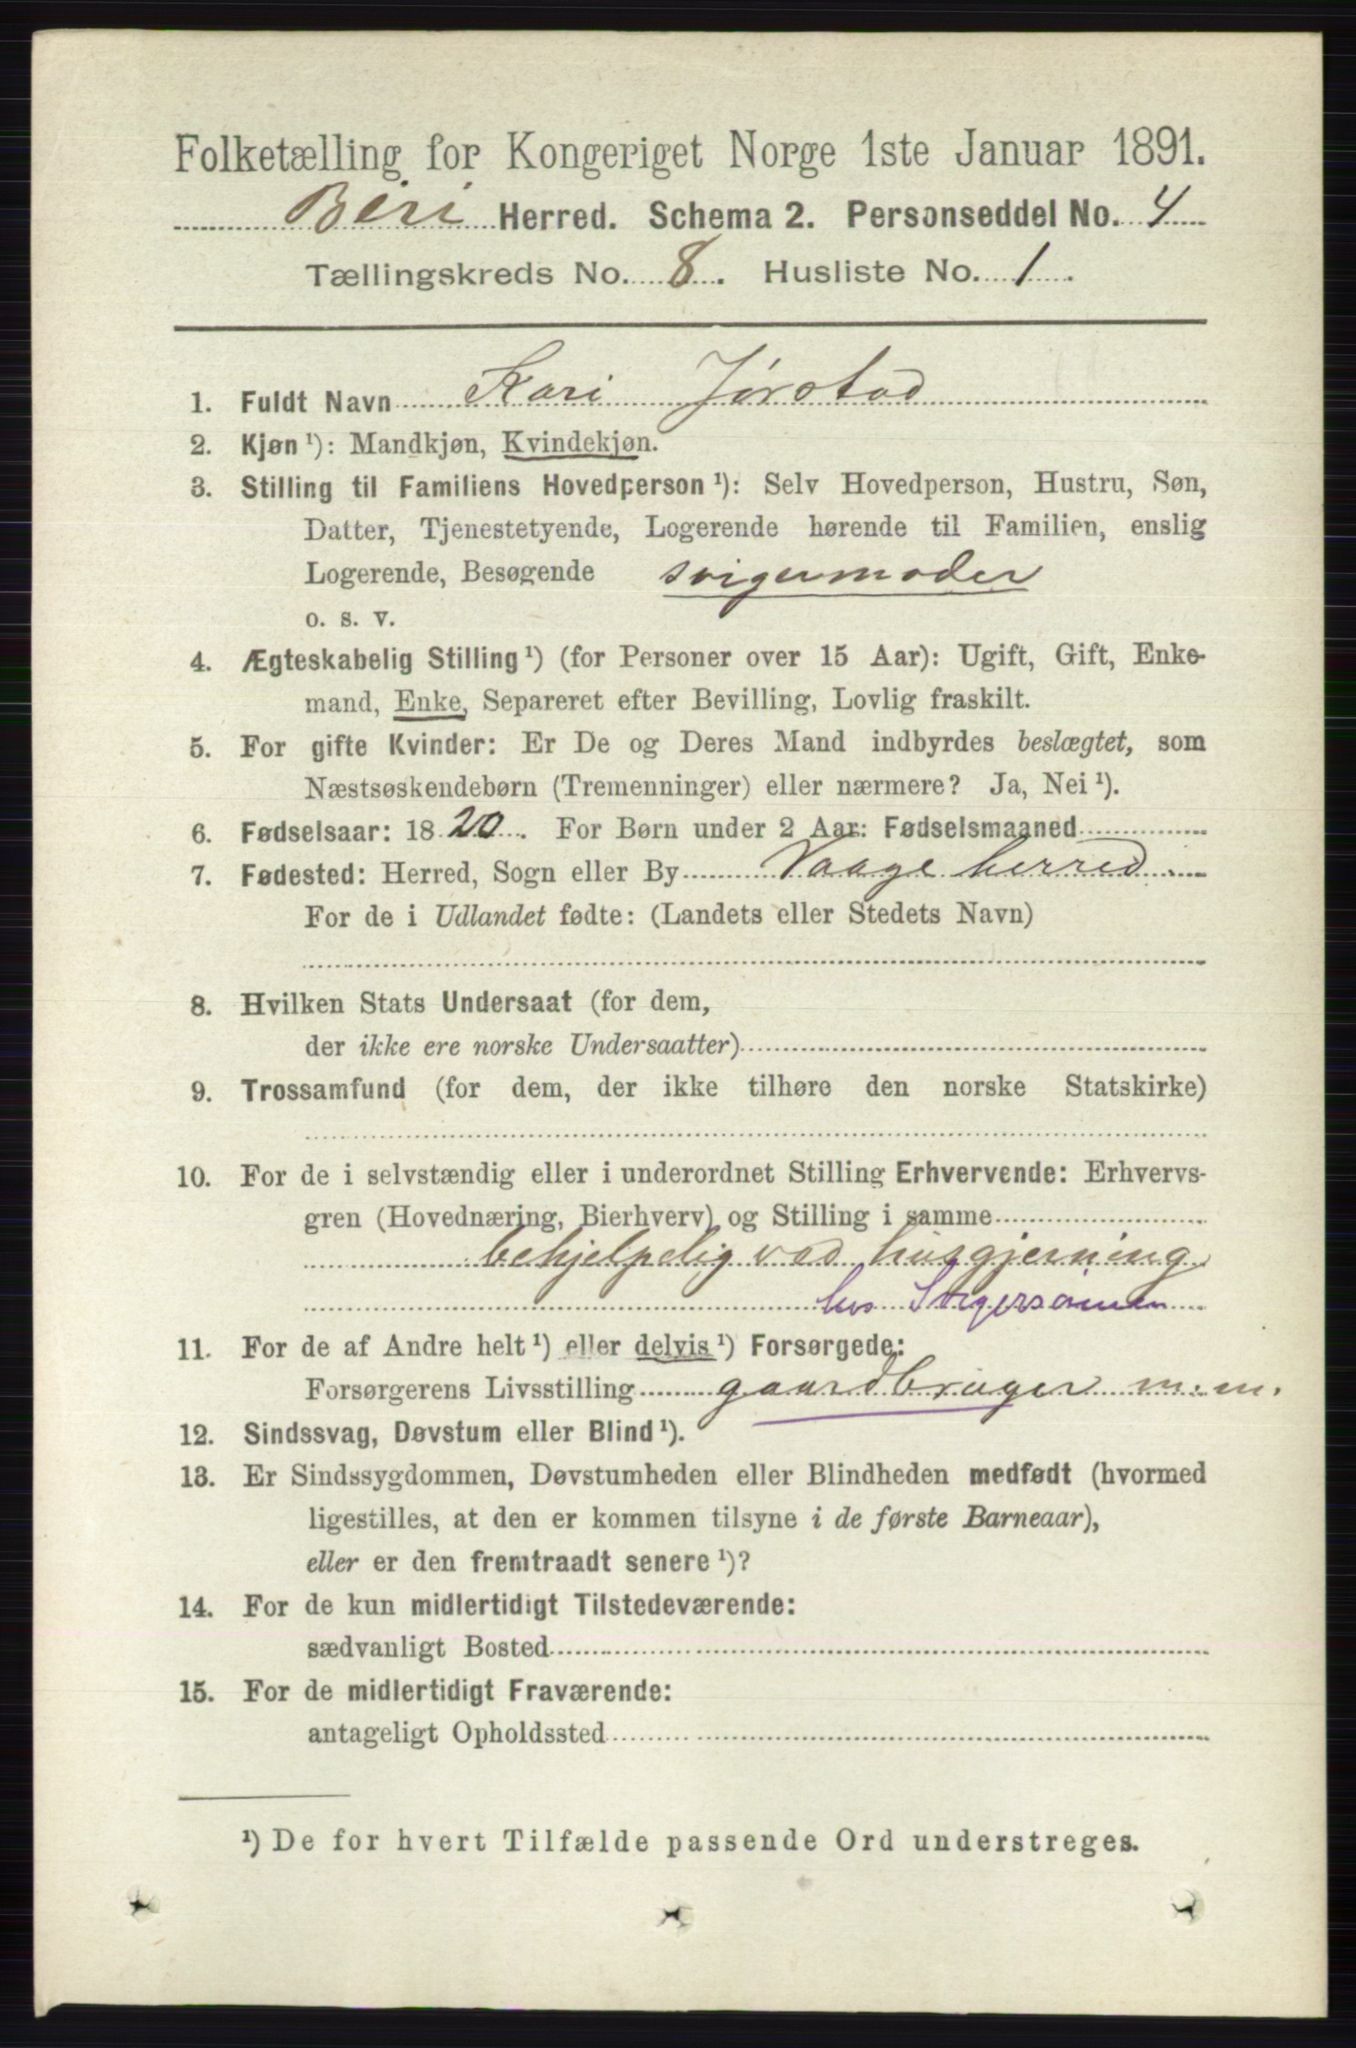 Folketælling for Kongeriget Norge 1ste Januar 1891.
Biri Herred. Schema 2. Personseddel No. 4
Tællingskreds No. 8. Husliste No. 1.
1. Fuldt Navn Kari Jørstad
2. Kjøn¹): Mandkjøn, Kvindekjøn.
3. Stilling til Familiens Hovedperson¹): Selv Hovedperson, Hustru, Søn,
Datter, Tjenestetyende, Logerende hørende til Familien, enslig
Logerende, Besøgende svigermoder
o. s. v.
4. Ægteskabelig Stilling¹) (for Personer over 15 Aar): Ugift, Gift, Enke-
mand, Enke, Separeret efter Bevilling, Lovlig fraskilt.
5. For gifte Kvinder: Er De og Deres Mand indbyrdes beslægtet, som
Næstsøskendebørn (Tremenninger) eller nærmere? Ja, Nei¹).
6. Fødselsaar: 1820. For Børn under 2 Aar: Fødselsmaaned
7. Fødested: Herred, Sogn eller By Vaage herred
For de i Udlandet fødte: (Landets eller Stedets Navn)
8. Hvilken Stats Undersaat (for dem,
der ikke ere norske Undersaatter)
9. Trossamfund (for dem, der ikke tilhøre den norske Statskirke)
10. For de i selvstændig eller i underordnet Stilling Erhvervende: Erhvervs-
gren (Hovednæring, Bierhverv) og Stilling i samme
behjelpelig ved husgjerning
hos Svigersønnen
11. For de af Andre helt¹) eller delvis¹) Forsørgede:
Forsørgerens Livsstilling gaardbruger m. m.
12. Sindssvag, Døvstum eller Blind¹).
13. Er Sindssygdommen, Døvstumheden eller Blindheden medfødt (hvormed
ligestilles, at den er kommen tilsyne i de første Barneaar),
eller er den fremtraadt senere¹)?
14. For de kun midlertidigt Tilstedeværende:
sædvanligt Bosted
15. For de midlertidigt Fraværende:
antageligt Opholdssted
¹) De for hvert Tilfælde passende Ord understreges.